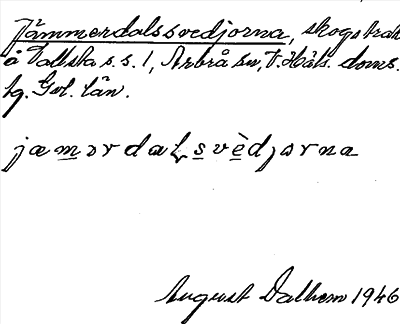 Jämmerdalssvedjorna, skogstrakt
å Vallsta s.s. 1, Arbrå sn, V. Häls. doms.
hg. Gvl. län.
jæmərdaḷsvèdjərna
August Dalhem 1946